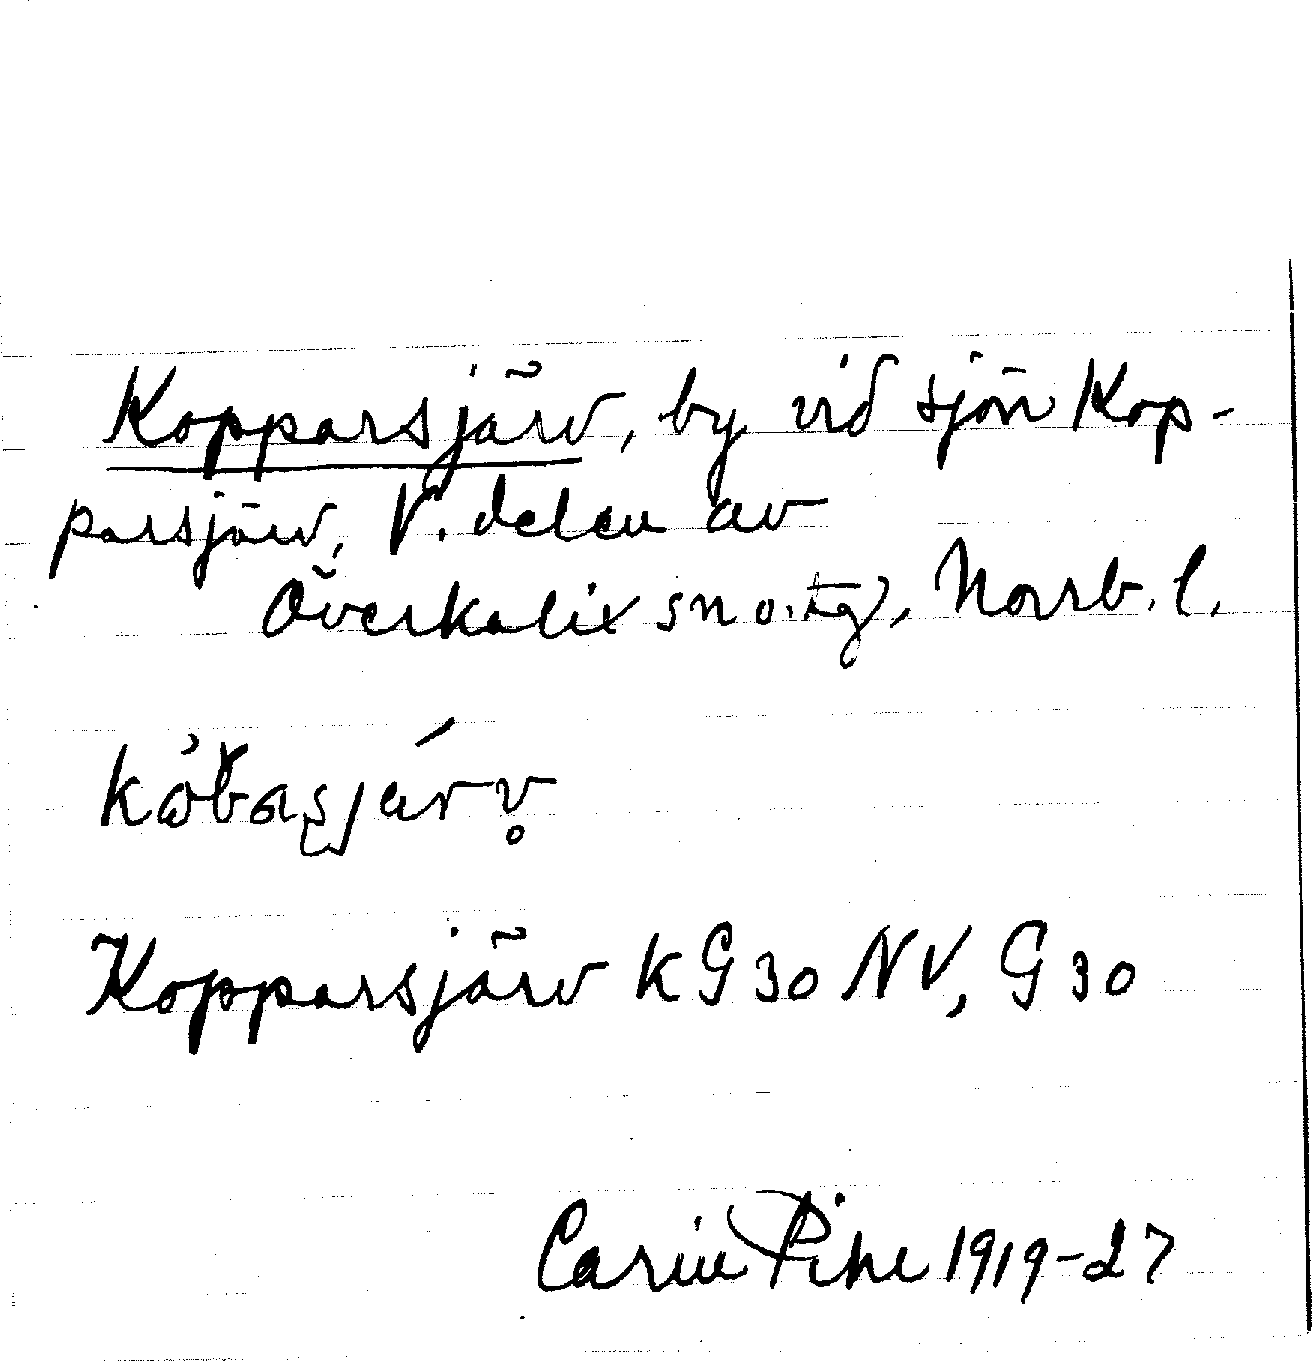 Kopparsjärv, by vid sjön Kop-
parsjärv, V. delen av
Överkalix sn o. tg, Norrb. l.
Kopparsjärv K G 30 NV, G 30
Carin Pihl 1919-27